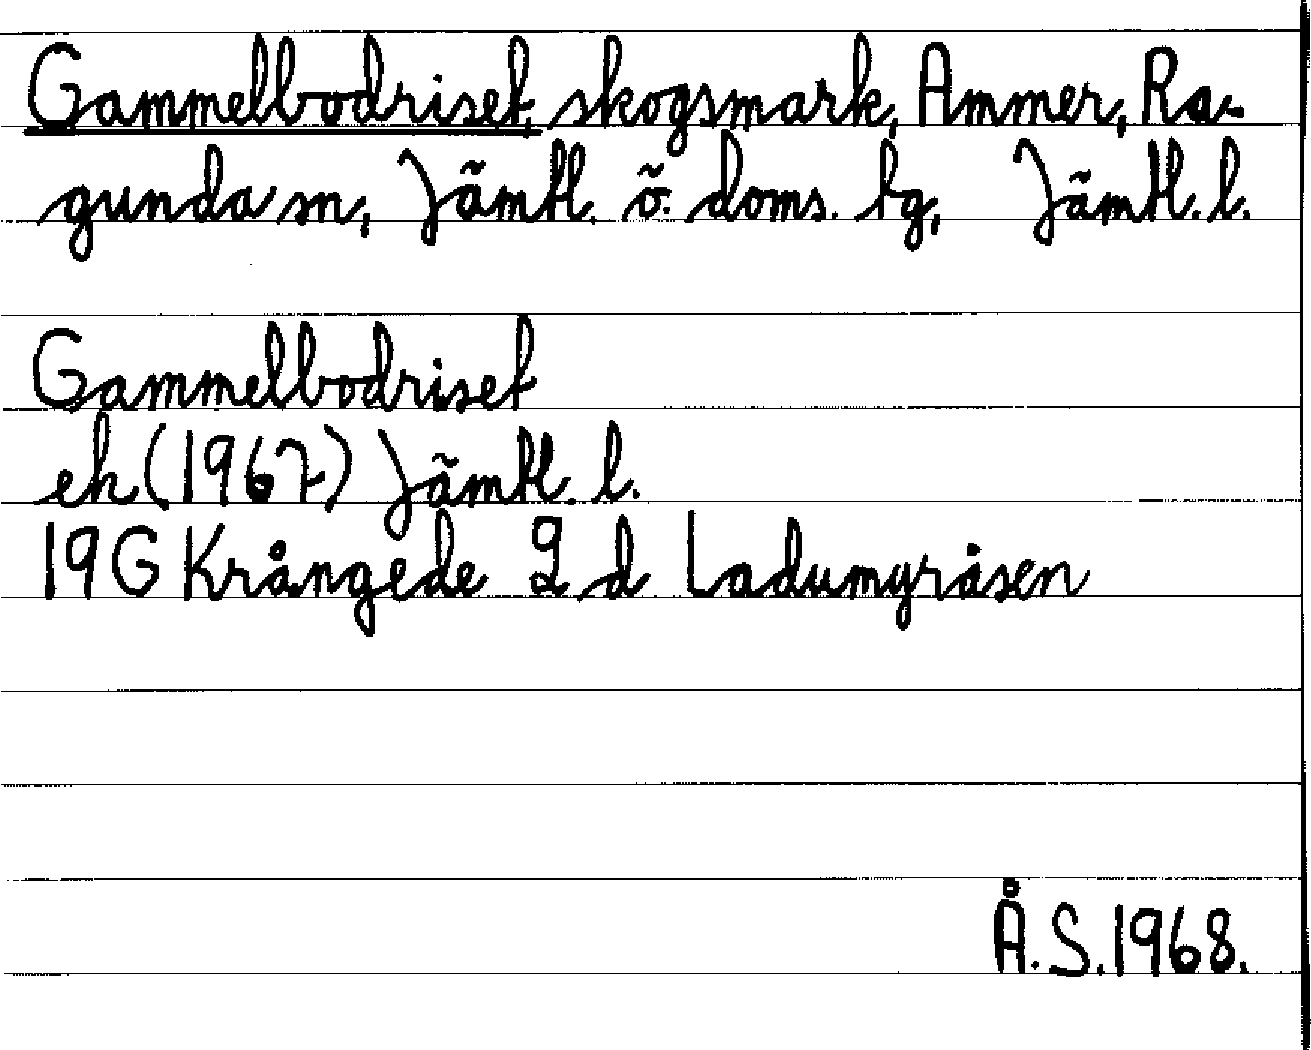 Gammelbodriset, skogsmark, Ammer, Ra-
gunda sn, Jämtl. ö. doms. tg, Jämtl. l.
Gammelbodriset
ek (1967) Jämtl. l.
19G Krångede 9 d Ladumyråsen
Å.S. 1968.